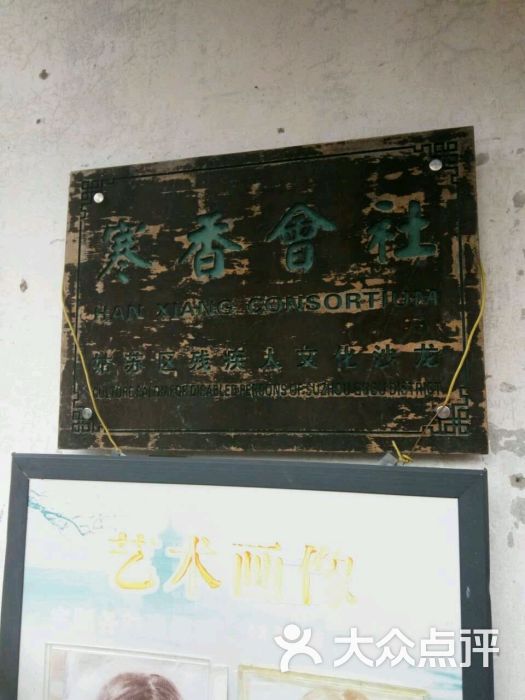 寒香會社
HAN XIANG CONSORTIUM
姑苏区残疾人文化沙龙
CULTURE SALON FOR DISABLED PERSONS OF SUZHOU GUSU DISTRICT
艺术画像
大众点评